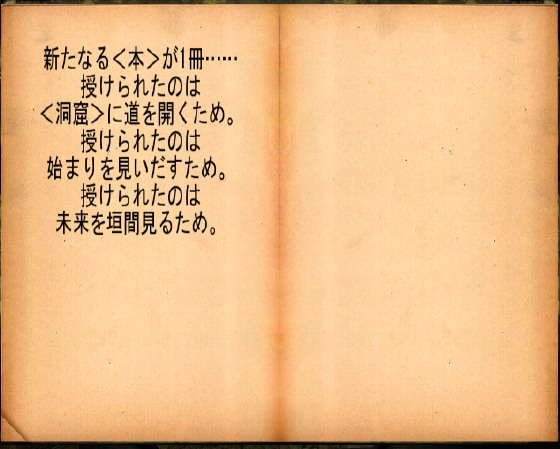 新たなる＜本＞が1冊……
授けられたのは
＜洞窟＞に道を開くため。
授けられたのは
始まりを見いだすため。
授けられたのは
未来を垣間見るため。